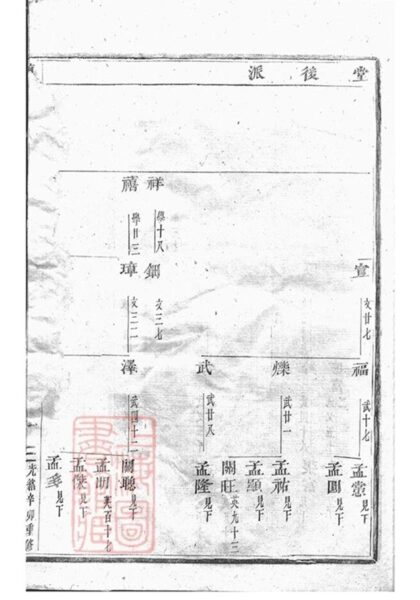 堂後派
宣
文廿七
福
武十七
孟憲見下
孟圓見下
爍
武廿一
孟祐見下
孟頤見下
關旺英九十三
武
武廿八
孟隆見下
祥
學十八
鈿
文三七
禧
學廿三
璋
文三二
澤
武四十二
關聰見下
孟明英百十七
見下
見下
光緒辛卯重修